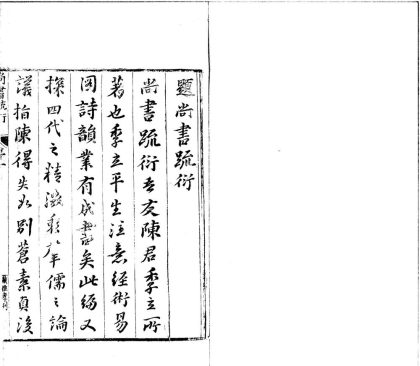 題尚書疏衍
尚書疏衍吾友陳君季立所
著也季立平生注意經術易
圖詩韻業有成書矣此編又
探四代之精激彰八年儒之論
議指陳得失如別蒼素真後
尚書疏衍